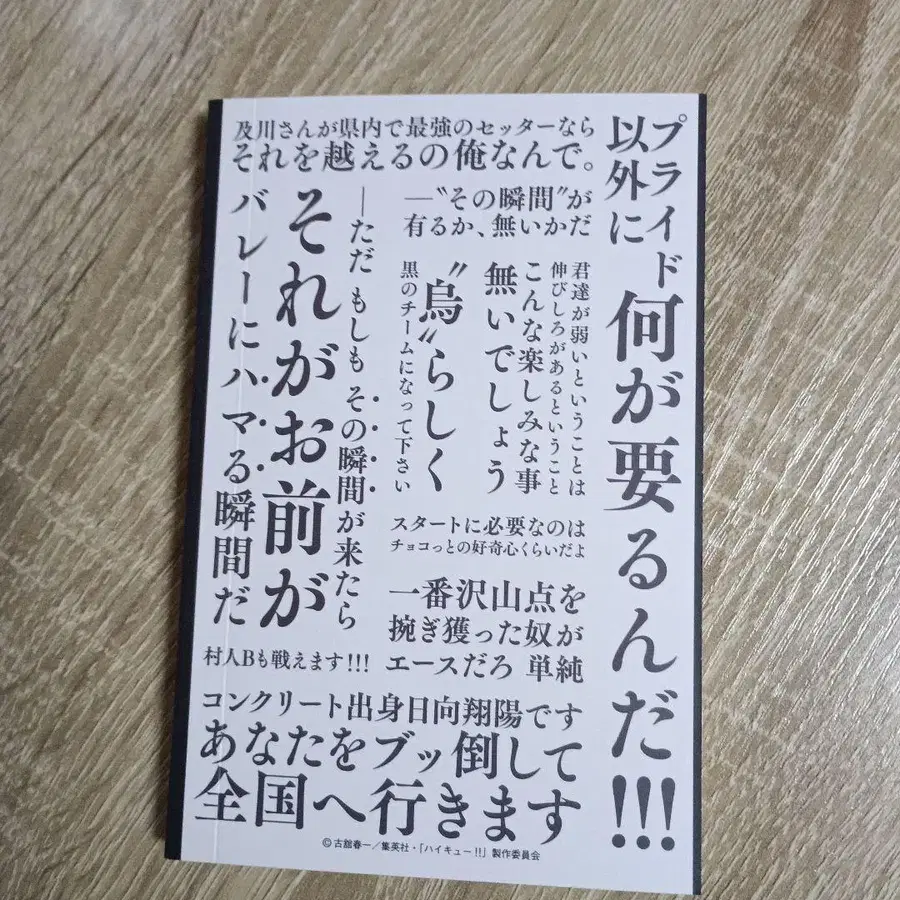 及川さんが県内で最強のセッターなら
それを越えるの俺なんで。
プライド
以外に何が要るんだ!!!
—〝その瞬間〟が
有るか、無いかだ
君達が弱いということは
伸びしろがあるということ
こんな楽しみな事
無いでしょう
〝烏〟らしく
黒のチームになって下さい
—ただ もしも その瞬間が来たら
それがお前が
バレーにハマる瞬間だ
スタートに必要なのは
チョコっとの好奇心くらいだよ
一番沢山点を
捥ぎ獲った奴が
エースだろ 単純
村人Bも戦えます!!!
コンクリート出身日向翔陽です
あなたをブッ倒して
全国へ行きます
©古舘春一/集英社・「ハイキュー!!」製作委員会